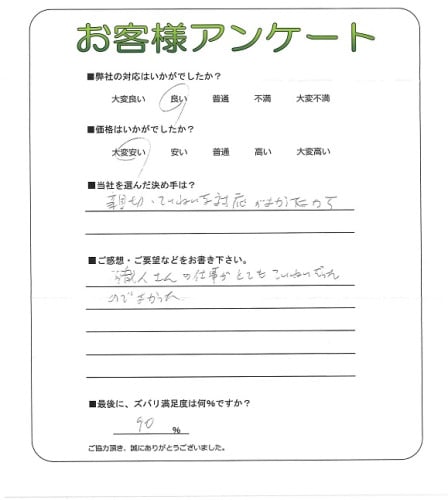 お客様アンケート
■弊社の対応はいかがでしたか？
大変良い 良い 普通 不満 大変不満
■価格はいかがでしたか？
大変安い 安い 普通 高い 大変高い
■当社を選んだ決め手は？
親切、ていねいな対応がよかったから
■ご感想・ご要望などをお書き下さい。
職人さんの仕事がとてもていねいだった
のでよかった
■最後に、ズバリ満足度は何％ですか？
90 ％
ご協力頂き、誠にありがとうございました。